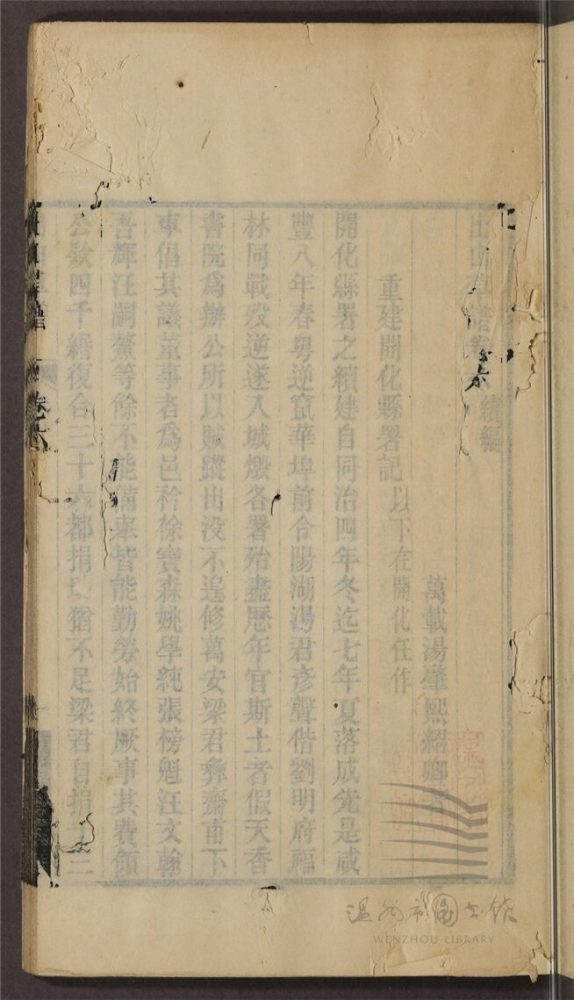 出山草譜卷六 續編
萬載湯肇熙紹卿
重建開化縣署記 以下在開化任作
開化縣署之續建自同治四年冬迄七年夏落成先是咸
豐八年春粵逆竄華埠前令陽湖湯君彥聲偕劉明府福
林同戰歿逆遂入城燬各署殆盡歷年官斯土者假天香
書院為辦公所以賊蹤出沒不遑修萬安梁君彝齋甫下
車倡其議董事者為邑矜徐寶森姚學純張榜魁汪文翰
吾輝汪嗣鰲等餘不能備舉皆能勤勞始終厥事其費領
公欵四千緡復合三十六都捐 猶不足梁君自捐 二
卷六
溫州市圖書館
WENZHOU LIBRARY